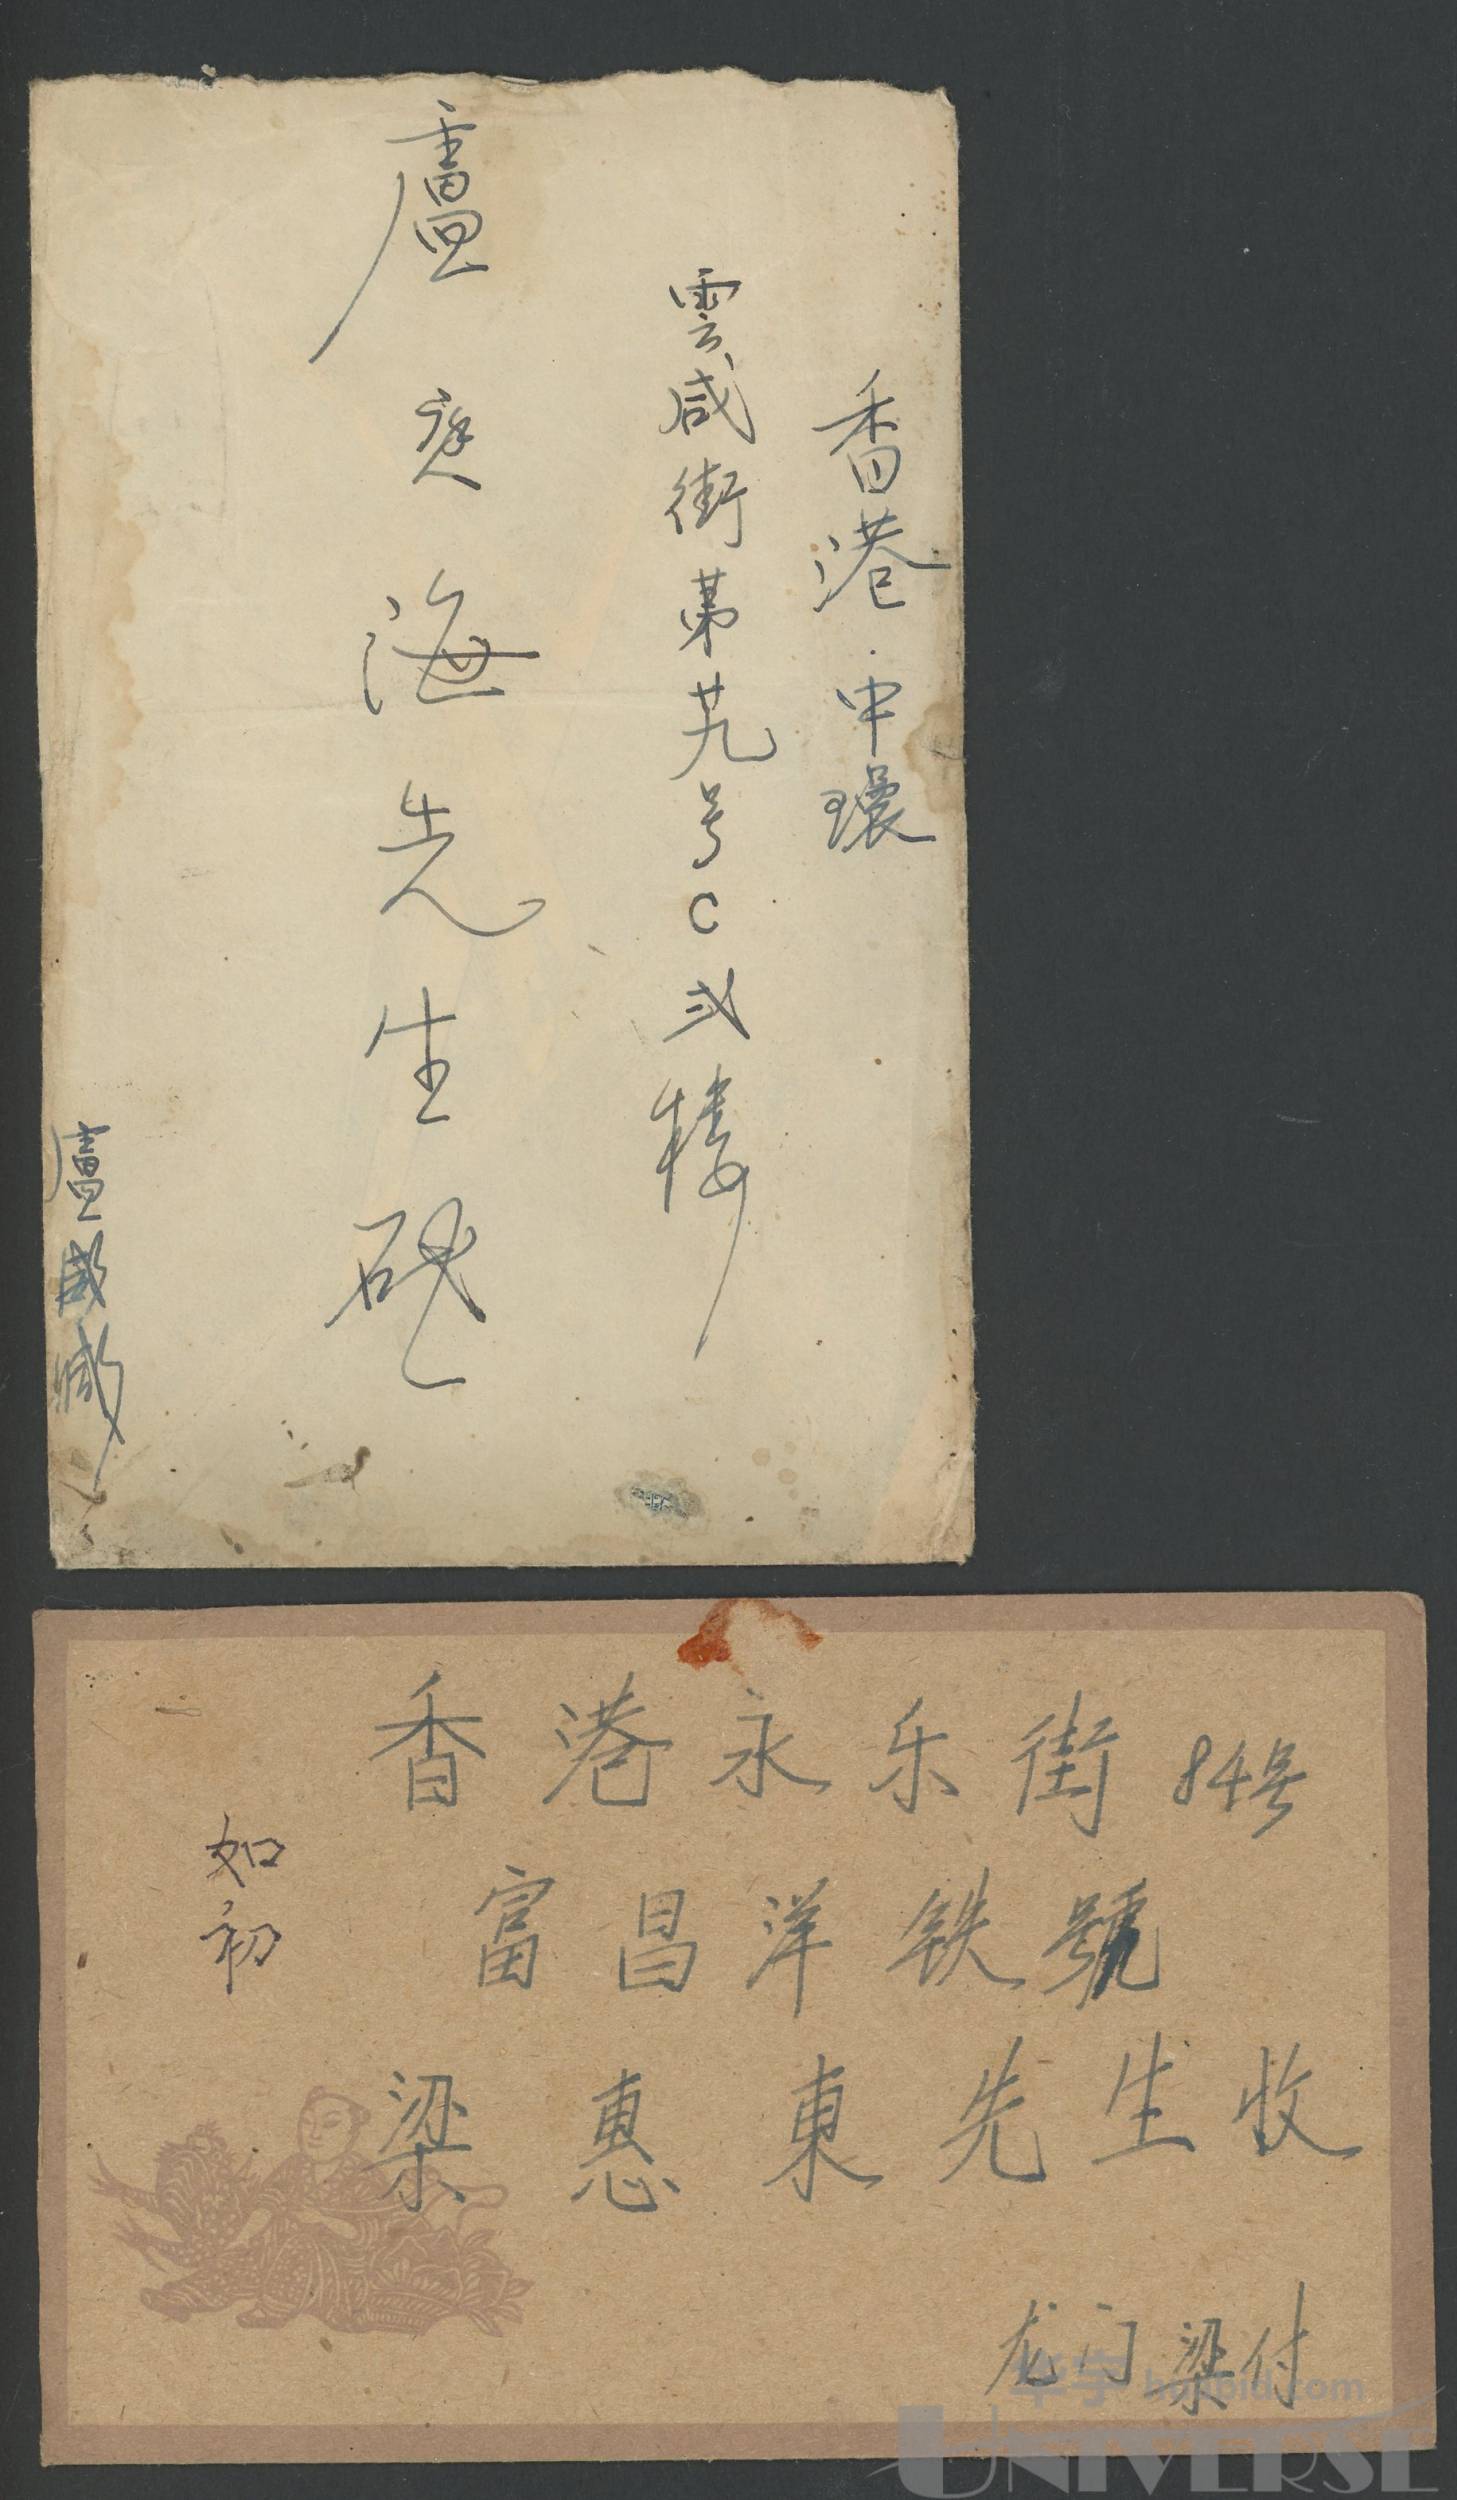 香港·中環
雲咸街第廿九号C弍楼
盧庭海先生啟
盧
香港永乐街84号
富昌洋铁號
梁惠東先生收
如初
龙门梁付
华宇 huabid.com
UNIVERSE